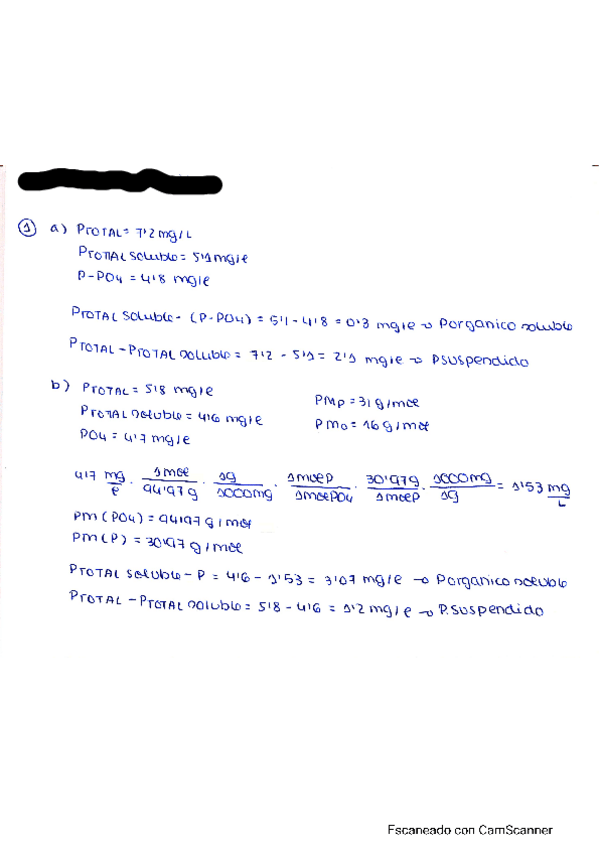 ① a) PTOTAL = 7'2 mg/L
PTOTAL soluble = 5'1 mg/l
P-PO4 = 4'8 mg/l
PTOTAL soluble - (P-PO4) = 5'1 - 4'8 = 0'3 mg/l → Porganico soluble
PTOTAL - PTOTAL soluble = 7'2 - 5'1 = 2'1 mg/l → Psuspendido
b) PTOTAL = 5'8 mg/l PMP = 31 g/mol
PTOTAL soluble = 4'6 mg/l PMO = 16 g/mol
PO4 = 4'7 mg/l
4'7 mg/l · 1mol/94'97g · 1g/1000mg · 1molP/1molPO4 · 30'97g/1molP · 1000mg/1g = 1'53 mg/L
PM (PO4) = 94'97 g/mol
PM (P) = 30'97 g/mol
PTOTAL soluble - P = 4'6 - 1'53 = 3'07 mg/l → Porganico soluble
PTOTAL - PTOTAL soluble = 5'8 - 4'6 = 1'2 mg/l → P.suspendido
Escaneado con CamScanner